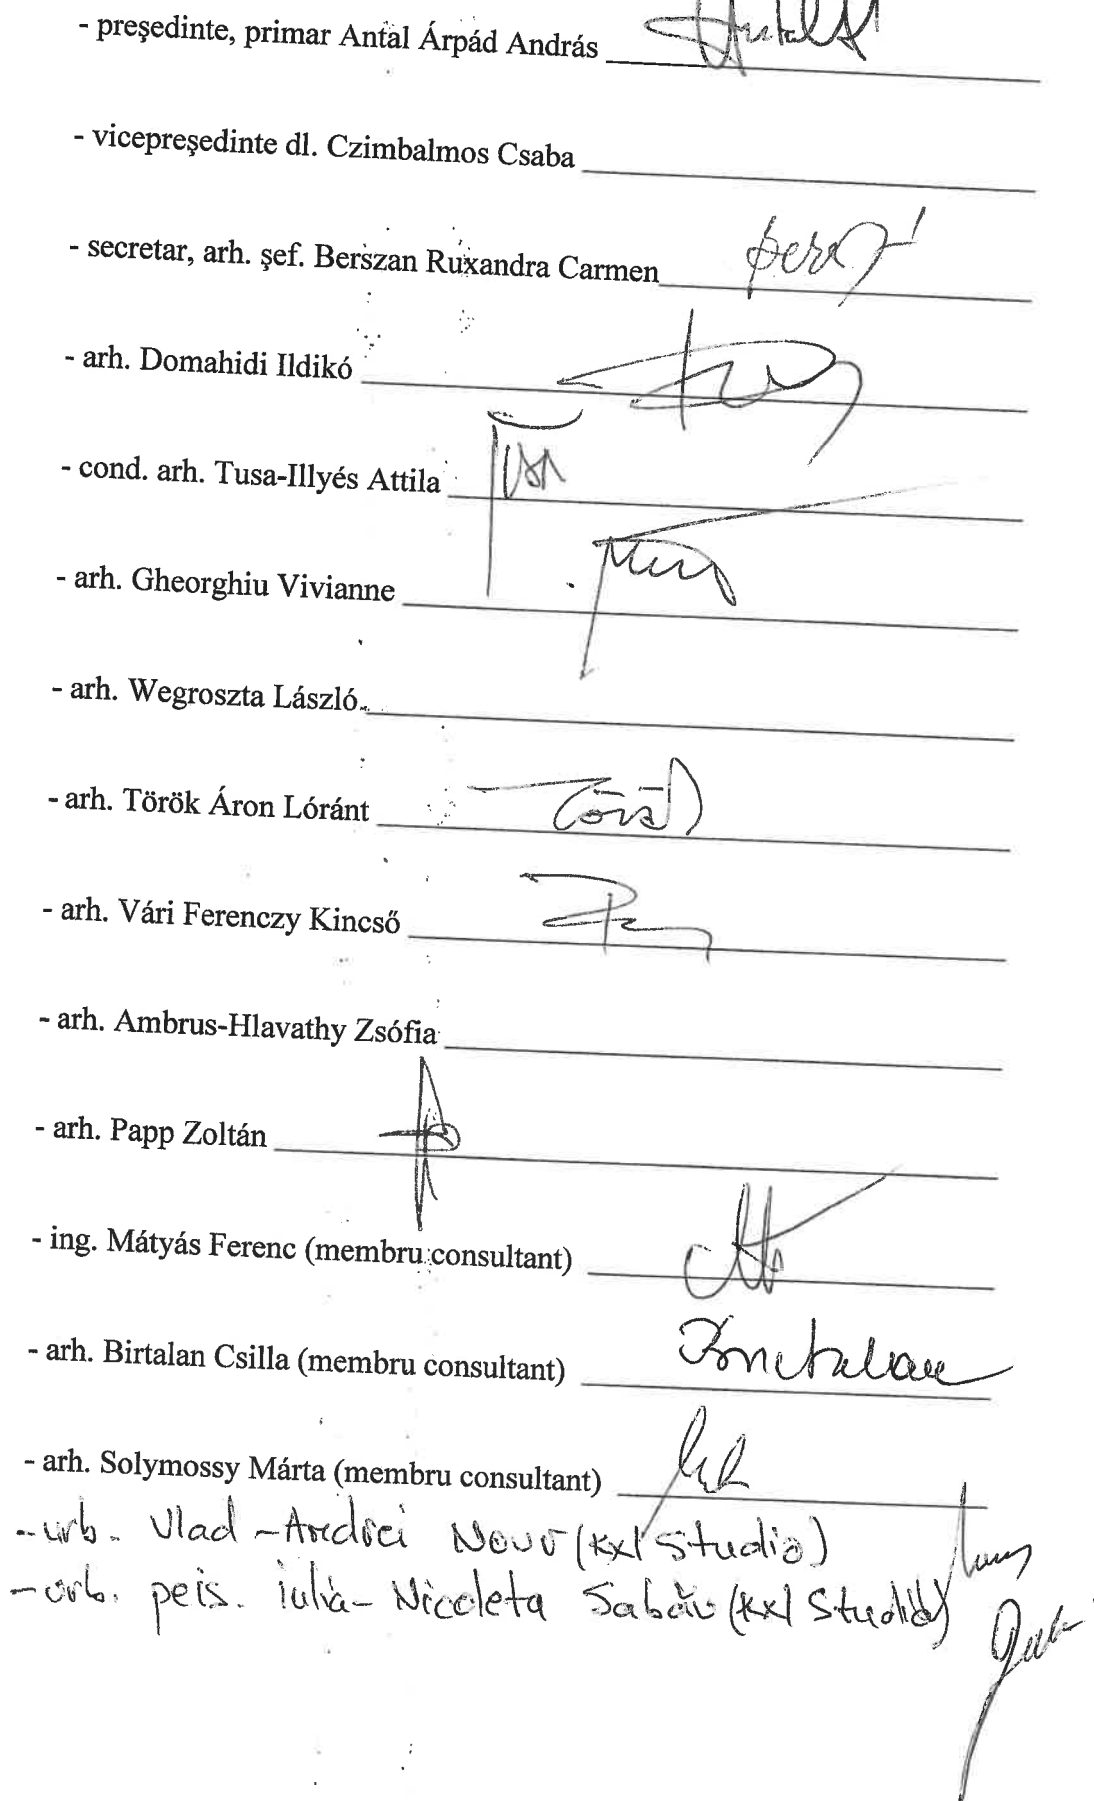 - preşedinte, primar Antal Árpád András
- vicepreşedinte dl. Czimbalmos Csaba
- secretar, arh. şef. Berszan Ruxandra Carmen
- arh. Domahidi Ildikó
- cond. arh. Tusa-Illyés Attila
- arh. Gheorghiu Vivianne
- arh. Wegroszta László
- arh. Török Áron Lóránt
- arh. Vári Ferenczy Kincső
- arh. Ambrus-Hlavathy Zsófia
- arh. Papp Zoltán
- ing. Mátyás Ferenc (membru consultant)
- arh. Birtalan Csilla (membru consultant)
- arh. Solymossy Márta (membru consultant)
- urb. Vlad-Andrei (kxl Studio)
- urb. peis. iulia-Nicoleta Sabău (kxl Studio)